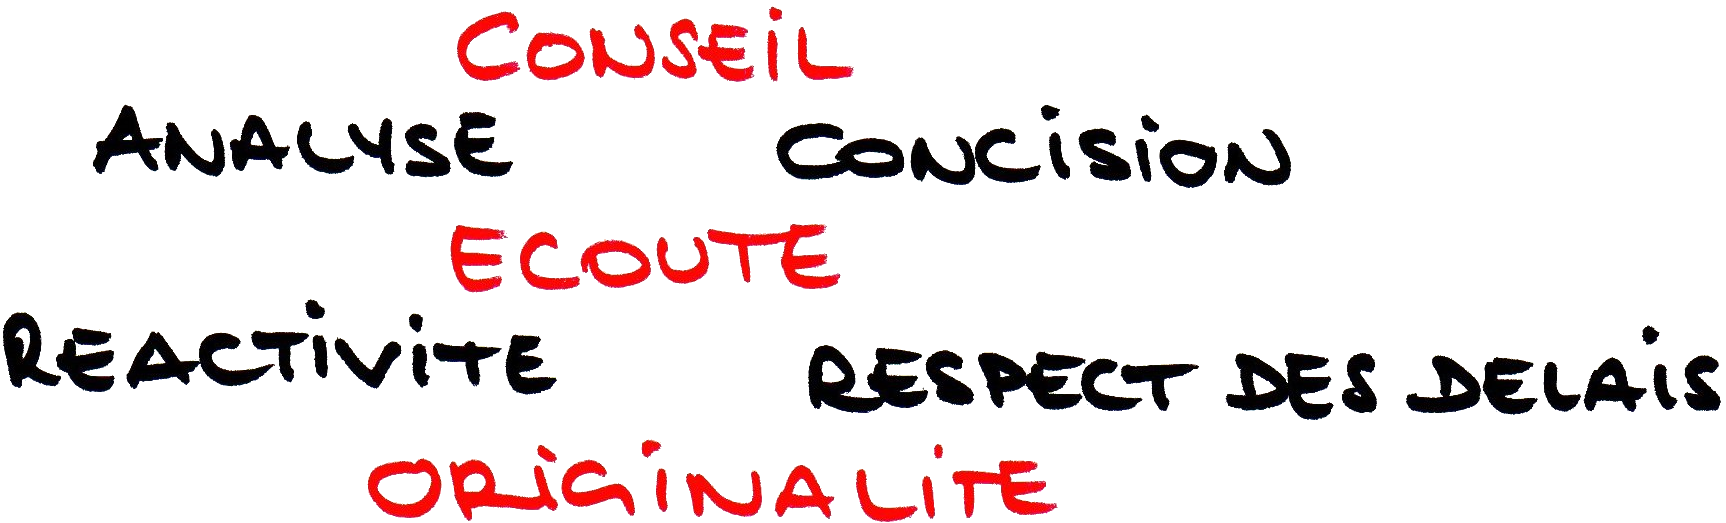 CONSEIL
ANALYSE CONCISION
ECOUTE
REACTIVITE RESPECT DES DELAIS
ORIGINALITE